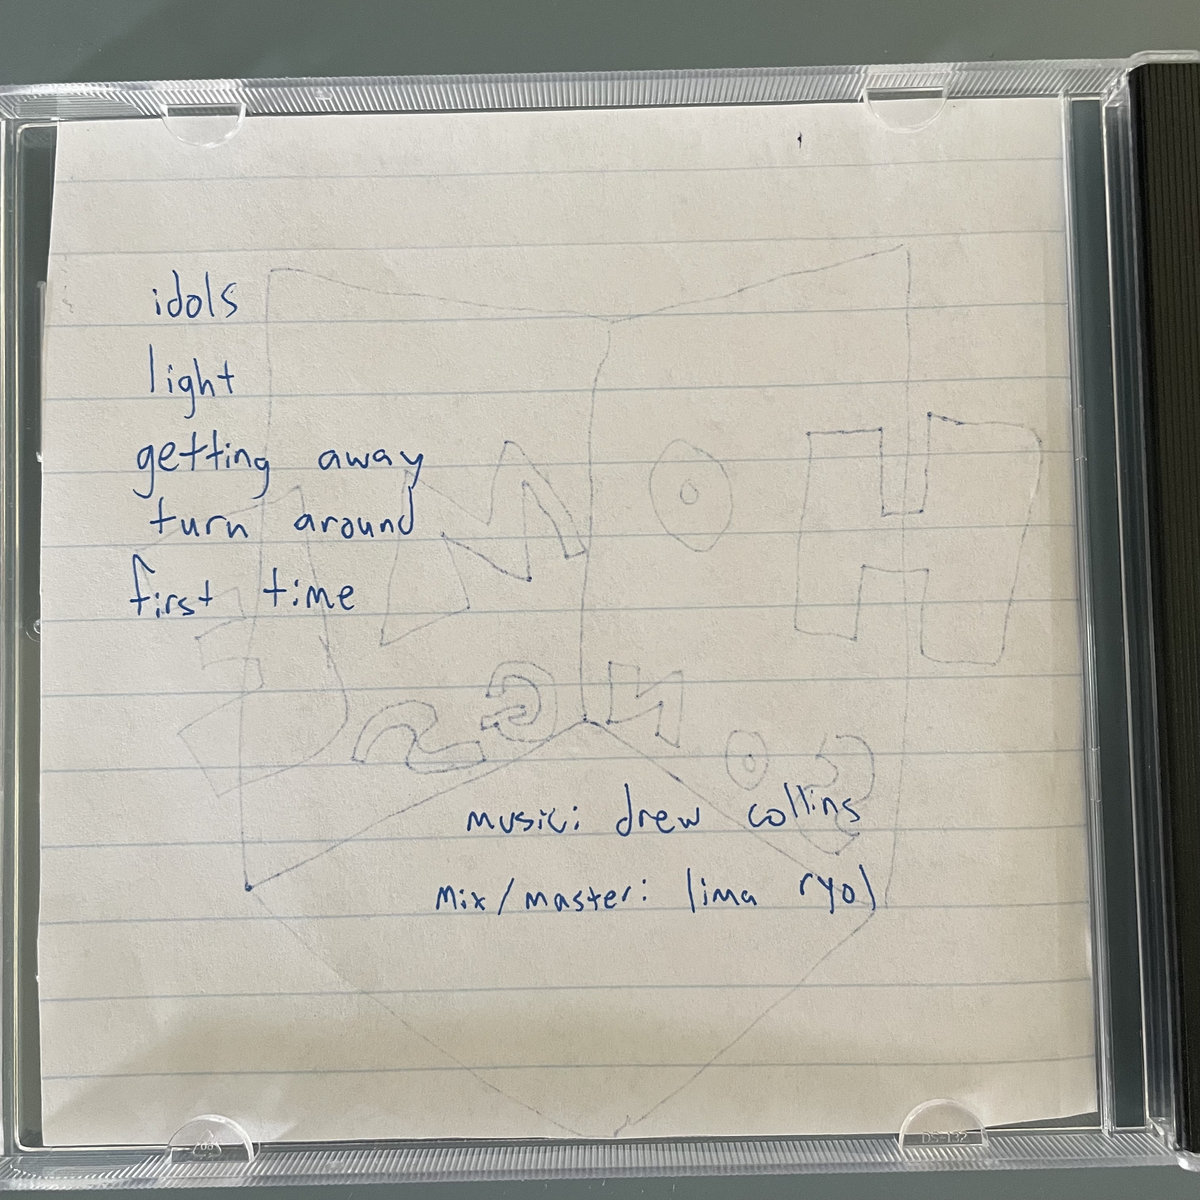 idols
light
getting away
turn around
first time
music: drew collins
mix/master: lima ryol